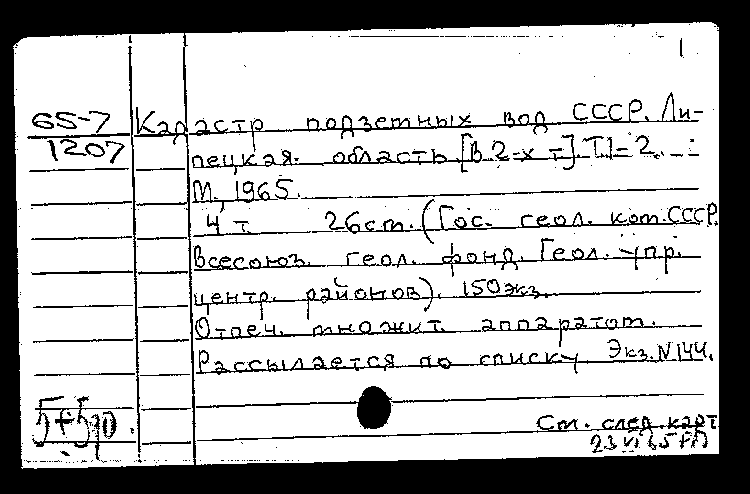 1
65-7 Кадастр подземных вод СССР. Ли-
1207 пецкая. область. [В 2-х т]. Т.1-2.
М., 1965.
4 т 26см. (Гос. геол. ком. СССР.
Всесоюз. геол. фонд. Геол. упр.
центр. районов). 150экз.
Отпеч. множит. аппаратом.
Рассылается по списку. Экз. N 144.
См. след. карт